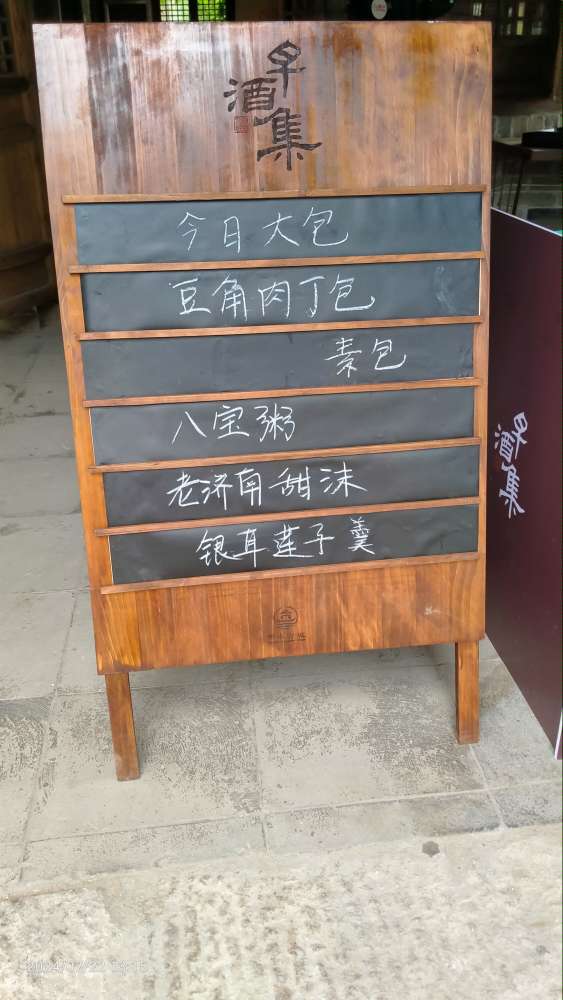 早酒集
今日大包
豆角肉丁包
素包
八宝粥
老济南甜沫
银耳莲子羹
早酒集